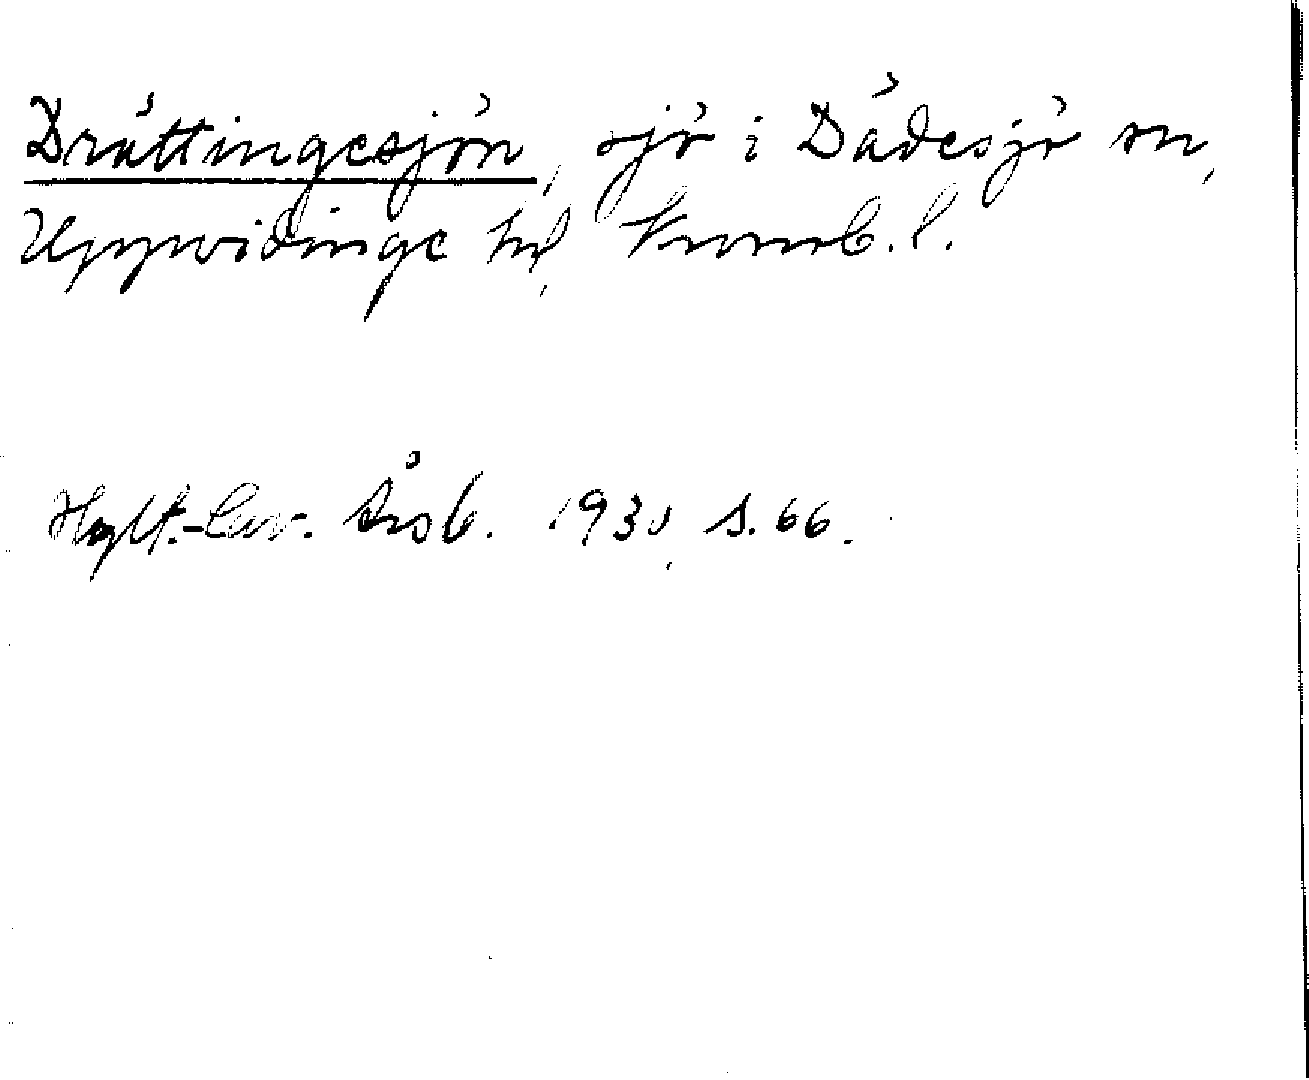 Dråttingesjön, sjö i Dädesjö sn,
Uppvidinge hd, Kronob. l.
Hylt.-Cav. Årsb. 1930, s. 66.